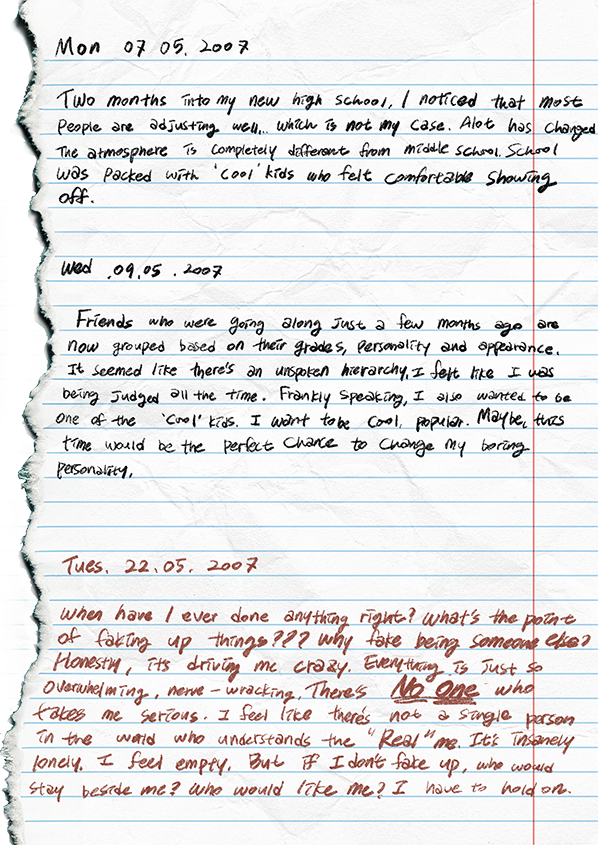 Mon 07 05. 2007
Two months into my new high school, I noticed that most
people are adjusting well... which is not my case. Alot has changed
The atmosphere is completely different from middle school. School
was packed with 'cool' kids who felt comfortable showing
off.
Wed .09.05 .2007
Friends who were going along just a few months ago are
now grouped based on their grades, personality and appearance.
It seemed like there's an unspoken hierarchy. I felt like I was
being judged all the time. Frankly speaking, I also wanted to be
one of the 'cool' kids. I want to be cool, popular. Maybe, this
time would be the perfect chance to change my boring
personality.
Tues. 22.05. 2007
When have I ever done anything right? What's the point
of faking up things??? Why fake being someone else?
Honestly, it's driving me crazy. Everything is just so
overwhelming, nerve-wracking. There's No One who
takes me serious. I feel like there's not a single person
in the world who understands the "Real" me. It's insanely
lonely. I feel empty. But if I don't fake up, who would
stay beside me? Who would like me? I have to hold on.